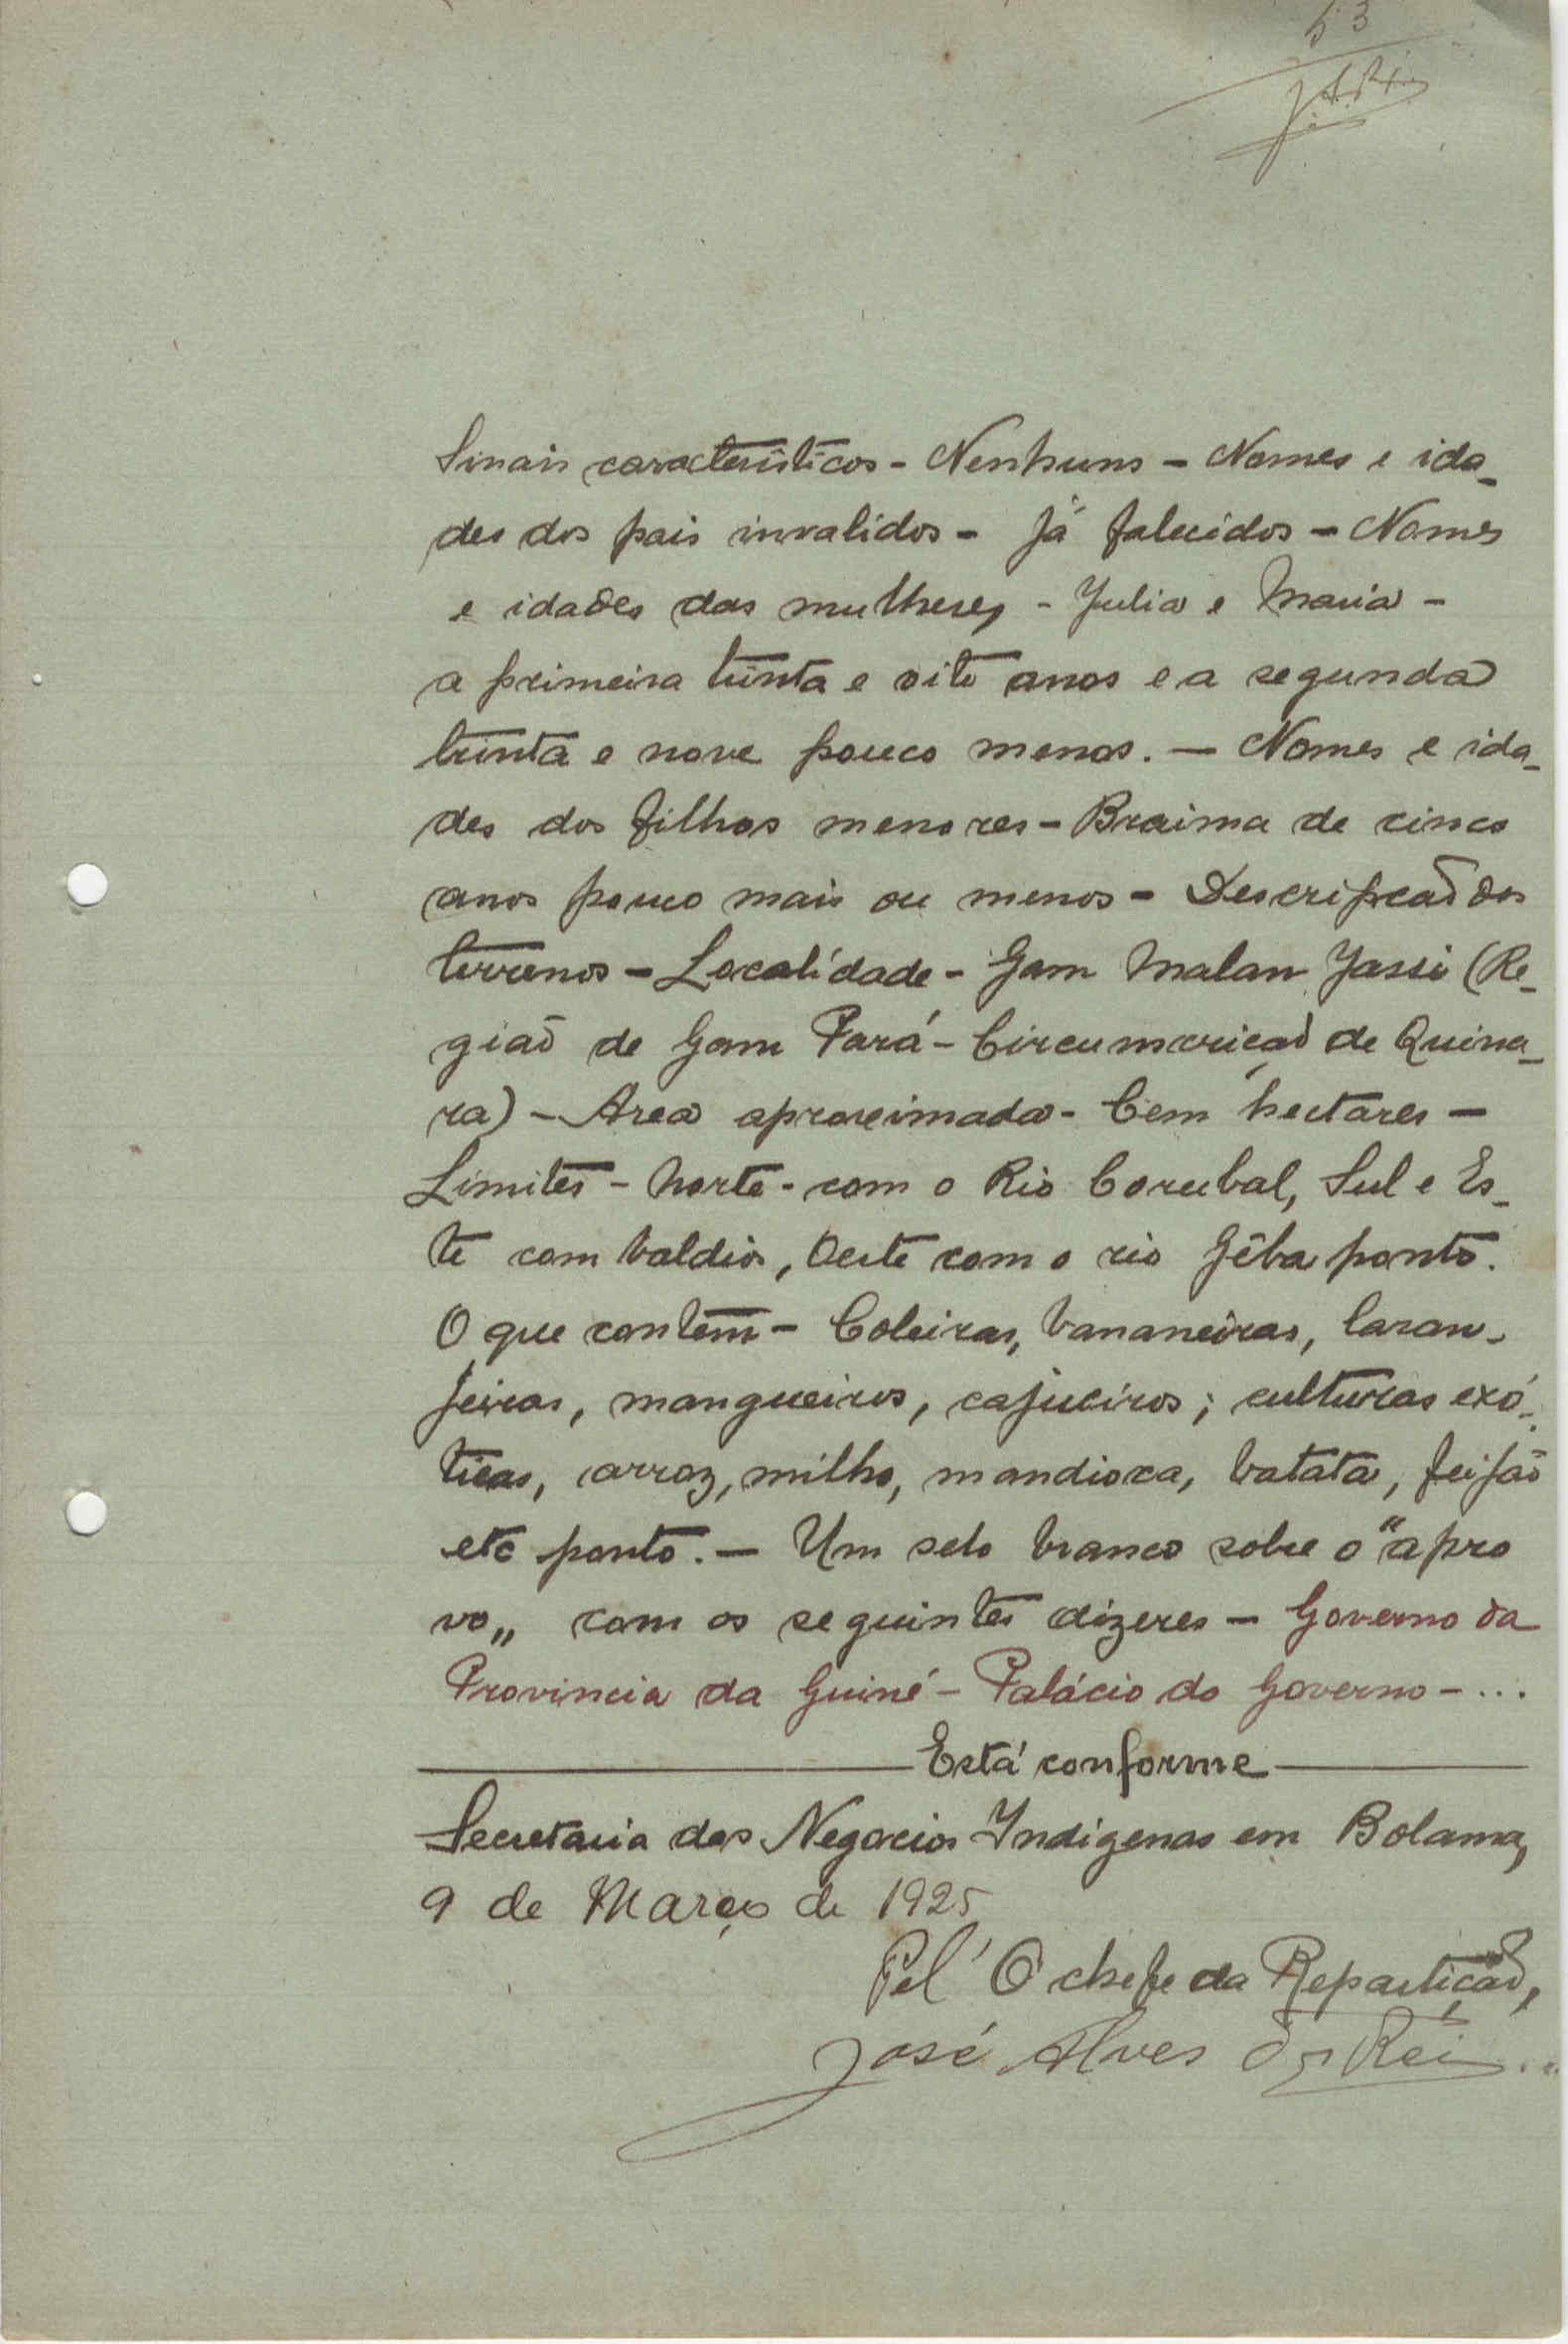 53
J.A.R.
Sinais caracteristicos - Nenhuns - Nomes e ida-
des dos pais invalidos - Já falecidos - Nomes
e idades das mulheres - Julia e Maria -
a primeira trinta e oito anos e a segunda
trinta e nove pouco menos. - Nomes e ida-
des dos filhos menores - Braima de cinco
anos pouco mais ou menos - Descripção dos
terrenos - Localidade - Gam Malan Jassi (Re-
gião de Gam Pará - Circumscrição de Quina-
ra) - Area aproximada - Cem hectares -
Limites - Norte - com o Rio Corubal, Sul e Es-
te com baldios, Oeste com o rio Gêba ponto.
O que contem - Coleiras, bananeiras, laran-
jeiras, mangueiros, cajueiros; culturas exó-
ticas, arroz, milho, mandioca, batata, feijão
etc ponto. - Um selo branco sobre o "apro
vo„ com os seguintes dizeres - Governo da
Provincia da Guiné - Palácio do Governo - ...
Está conforme
Secretaria dos Negocios Indigenas em Bolama,
9 de Março de 1925
Pel' O chefe da Repartição,
José Alves dos Reis